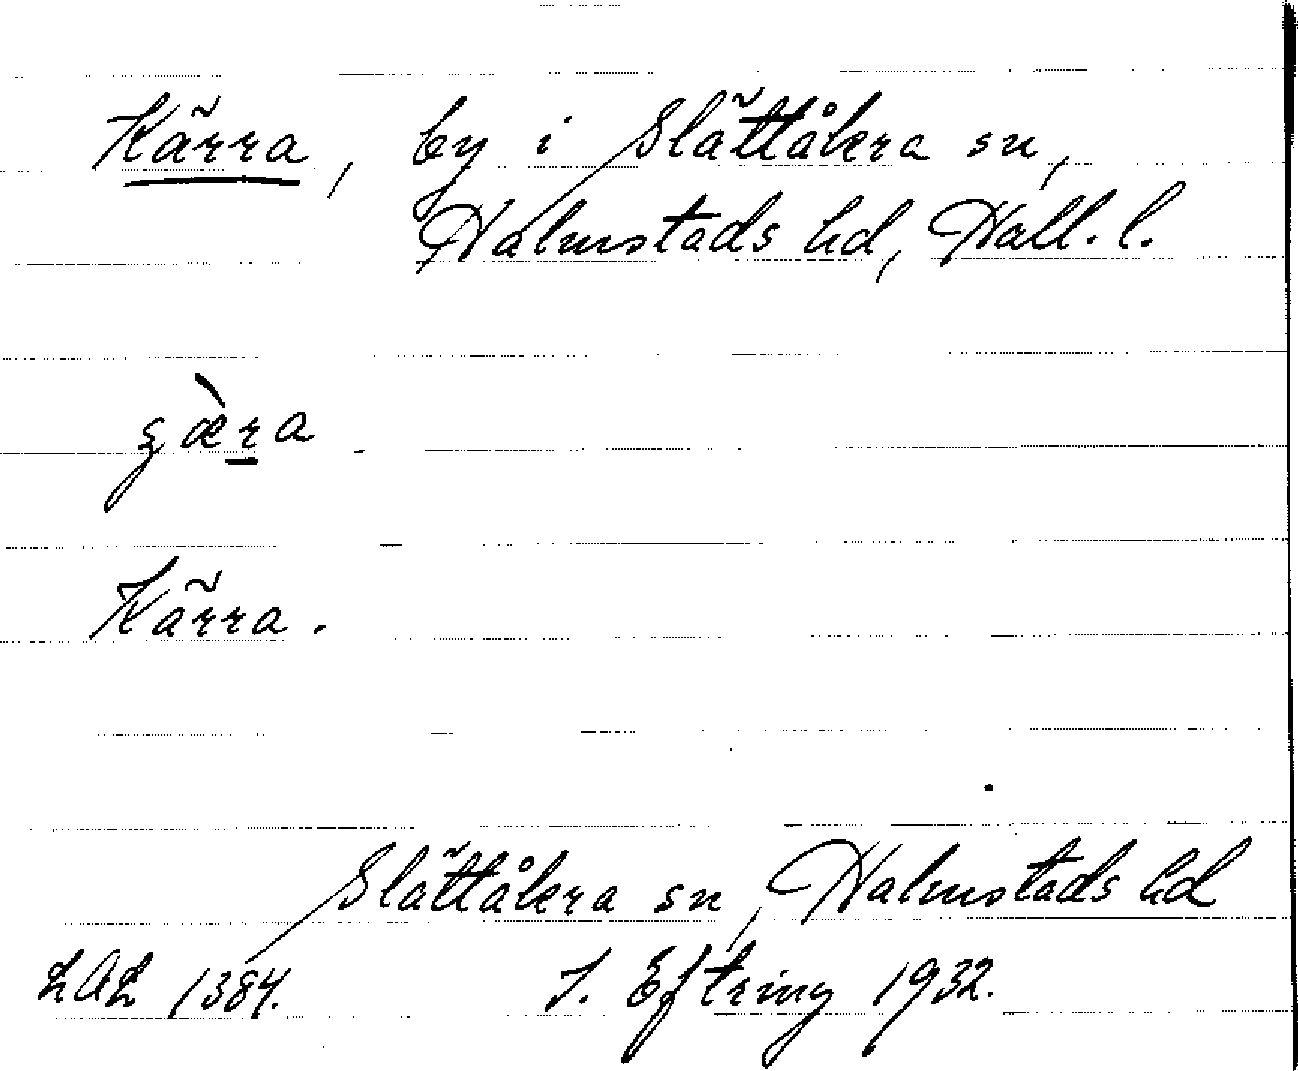 Kärra, by i Slättåkra sn,
Halmstads hd, Hall. l.
ʒæ̀r̲a
Kärra.
Slättåkra sn, Halmstads hd
LAL 1384. J. Eftring 1932.